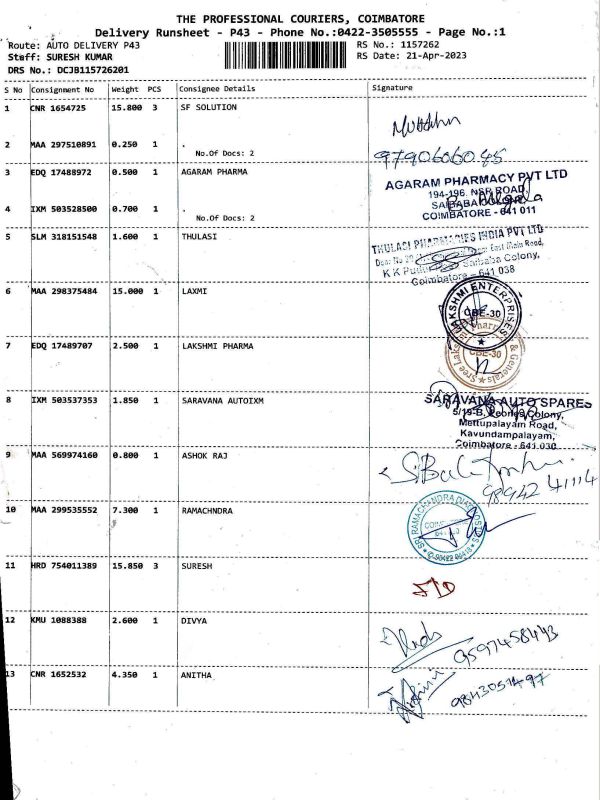 THE PROFESSIONAL COURIERS, COIMBATORE
Delivery Runsheet - P43 - Phone No.:0422-3505555 - Page No.:1
Route: AUTO DELIVERY P43 RS No.: 1157262
Staff: SURESH KUMAR RS Date: 21-Apr-2023
DRS No.: DCJB115726201
S No Consignment No Weight PCS Consignee Details Signature
1 CNR 1654725 15.800 3 SF SOLUTION
2 MAA 297510891 0.250 1 .
No.Of Docs: 2
9790606045
3 EDQ 17488972 0.500 1 AGARAM PHARMA
AGARAM PHARMACY PVT LTD
194-196, NSR ROAD,
SAIBABA COLONY,
COIMBATORE - 641 011
4 IXM 503528500 0.700 1 .
No.Of Docs: 2
5 SLM 318151548 1.600 1 THULASI
THULASI PHARMACIES INDIA PVT LTD
East Main Road,
Saibaba Colony,
Coimbatore - 641 038
6 MAA 298375484 15.000 1 LAXMI
LAKSHMI ENTERPRISES
CBE-30
7 EDQ 17489707 2.500 1 LAKSHMI PHARMA
CBE-30
8 IXM 503537353 1.850 1 SARAVANA AUTOIXM
SARAVANA AUTO SPARES
5/19-B, Peoples Colony,
Mettupalayam Road,
Kavundampalayam,
Coimbatore - 641 030
9 MAA 569974160 0.800 1 ASHOK RAJ
98942 41114
10 MAA 299535552 7.300 1 RAMACHNDRA
SRI RAMACHANDRA
11 HRD 754011389 15.850 3 SURESH
12 KMU 1088388 2.600 1 DIVYA
9597458443
13 CNR 1652532 4.350 1 ANITHA